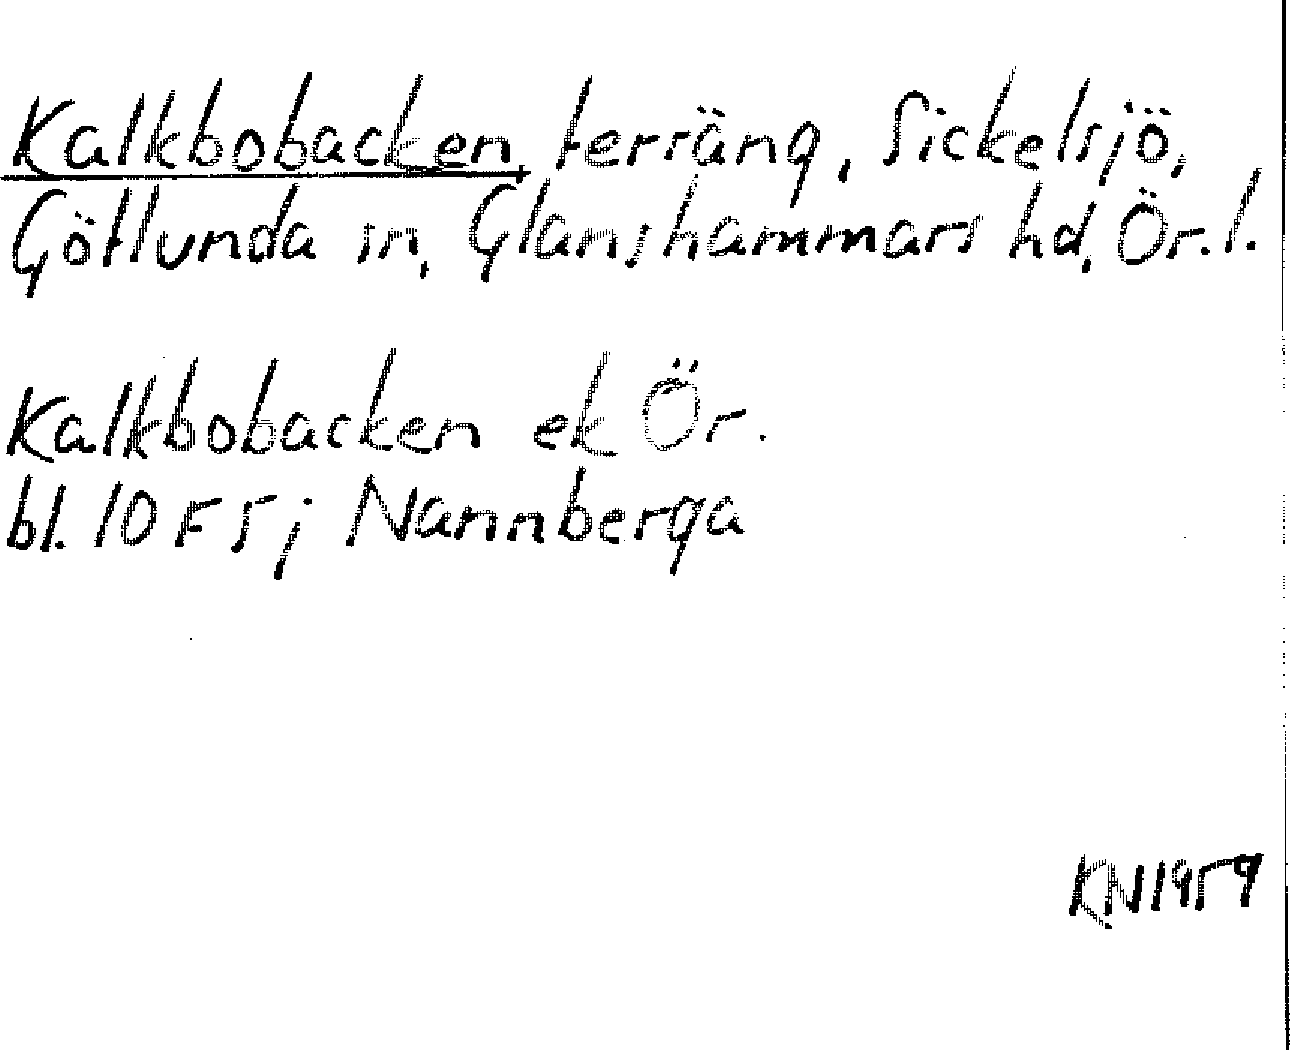 Kalkbobacken, terräng, Sickelsjö,
Götlunda sn, Glanshammars hd, Ör. l.
Kalkbobacken ek Ör.
bl. 10 F 5 j Nannberga
KN 1959